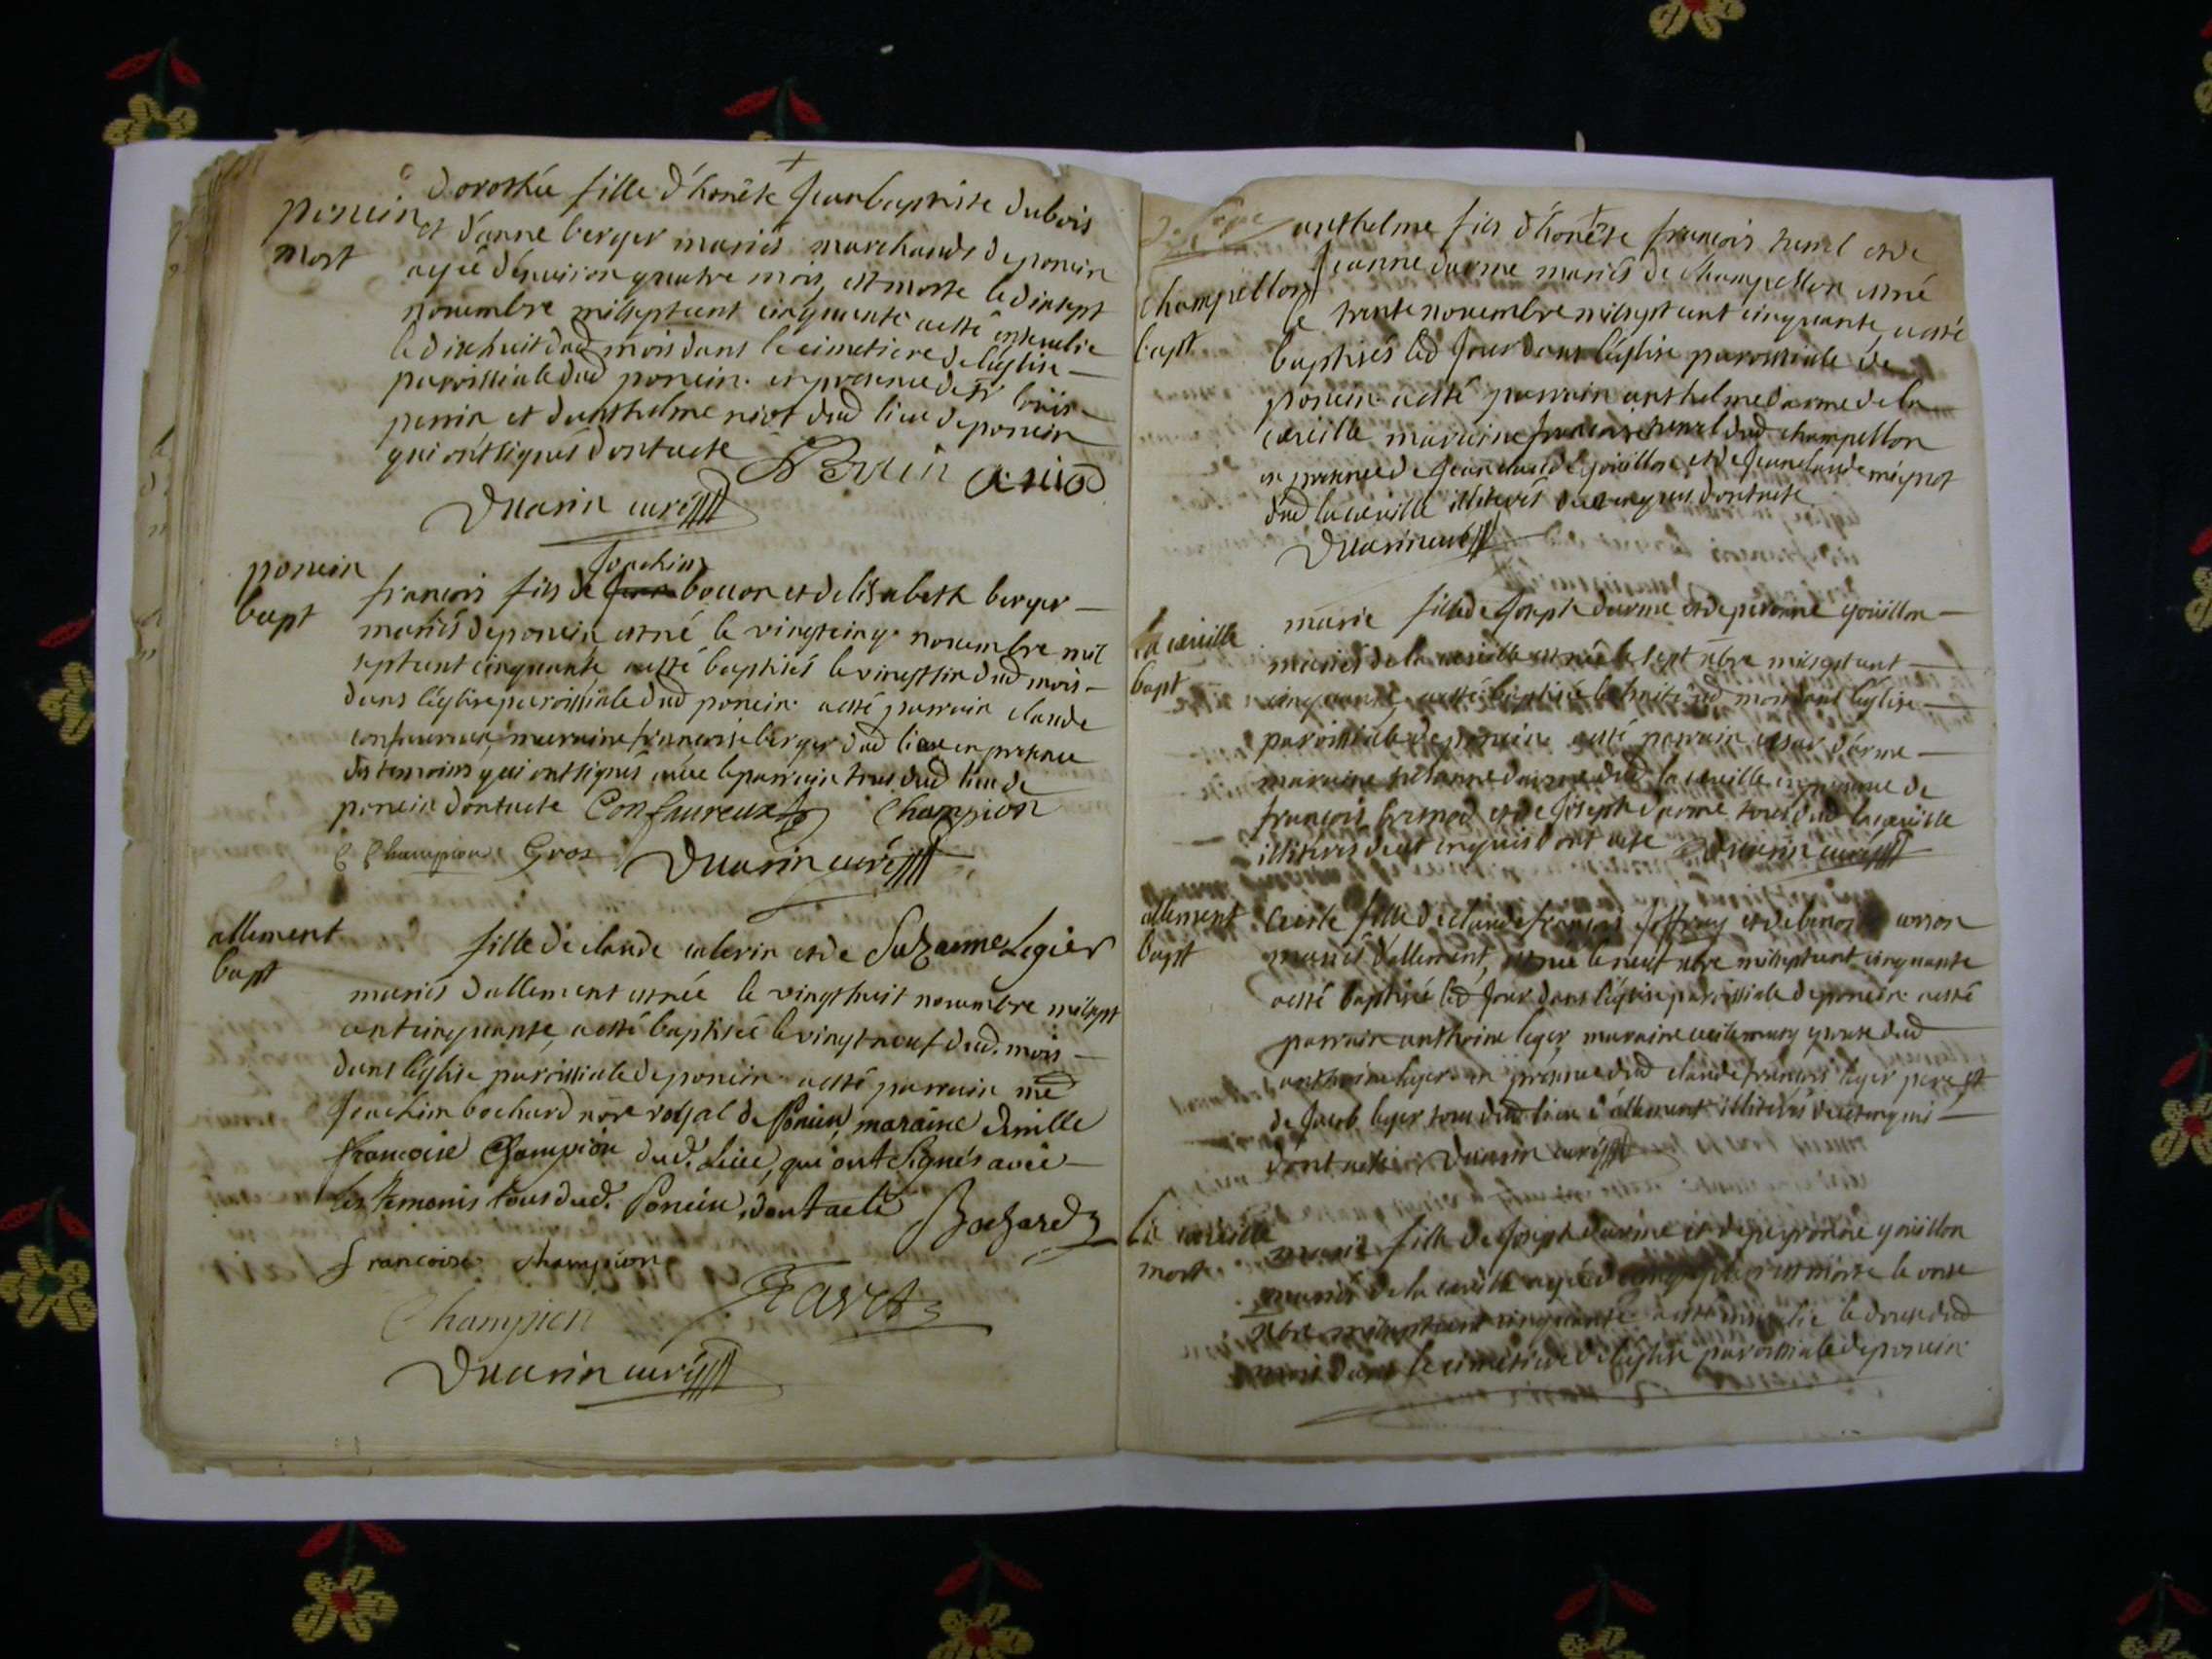 Dorothée fille d'honête Jean baptiste dubois
poncin
mort
et d'anne berger mariés marchands de poncin
agée d'environ quatre mois, est morte le dix sept
novembre mil sept cent cinquante a esté ensevelie
le dix huit dud mois dans le cimetiere de l'église
parroissiale dud poncin. en presence de sr louis
perrin et d'anthelme niod dud lieu de poncin
qui ont signés dont acte Perrin a niod
Duarin curé
poncin
bapt
Joachim
francois fils de Jean bocion et d'elisabeth berger
mariés de poncin est né le vingt cinq novembre mil
sept cent cinquante, a esté baptisés le vingt six dud mois
dans l'église parroissiale dud poncin. a esté parrain claude
confavreux, marraine francoise berger dud lieu en presence
des temoins qui ont signés avec le parrain tous dud lieu de
poncin dont acte Confavreux Champion
C Champion Gros Duarin curé
allement
bapt
fille de claude caberin et de Suzanne Legier
mariés d'allement est née le vingt huit novembre mil sept
cent cinquante, a esté baptisée le vingt neuf dud. mois
dans l'église parroissiale de poncin. a esté parrain me
Joachim bochard nore royal de Poncin, maraine demlle
francoise Champion dud. Lieu, qui ont signés avec
les temoins tous dud. Poncin, dont acte Bochard
francoise champion
Champion Favet
Duarin curé
anthelme fils d'honête francois et de
Champellon
bapt
Jeanne darme mariés de champellon est né
le trente novembre mil sept cent cinquante, a esté
baptisés led Jour dans l'église parroissiale de
poncin a esté parrain anthelme darme de la
cueille maraine francoise dud champellon
en presence de Jean claude gouillon et de Jean claude mignot
dud la cueille illiterés de ce enquis dont acte
Duarin curé
la cueille
bapt
marie fille de Joseph darme et de peronne gouillon
mariés de la cueille est née le sept xbre mil sept cent
cinquante, a esté baptisée le huit dud mois dans l'église
parroissiale de poncin a esté parrain cesar darme
maraine susanne darme dud la cueille en presence de
francois et de Joseph darme tous dud la cueille
illiterés de ce enquis dont acte Duarin curé
allement
bapt
Cecile fille de claude francois Joffray et de benoite
mariés d'allement, est née le neuf xbre mil sept cent cinquante
a esté baptisée led Jour dans l'église parroissiale de poncin a esté
parrain anthoine leger, maraine cecile mary epouse dud
anthoine leger en presence dud claude francois leger pere et
de Jacob leger tous dud lieu d'allement illiterés de ce enquis
dont acte Duarin curé
la cueille
mort
marie fille de Joseph darme et de peyronne gouillon
mariés de la cueille agée de est morte le onse
xbre mil sept cent cinquante a esté ensevelie le douse dud
mois dans le cimetiere de l'église parroissiale de poncin